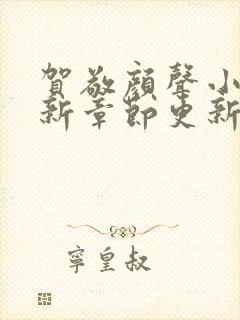 賀敬顏聲小
新章節更新
寧皇叔